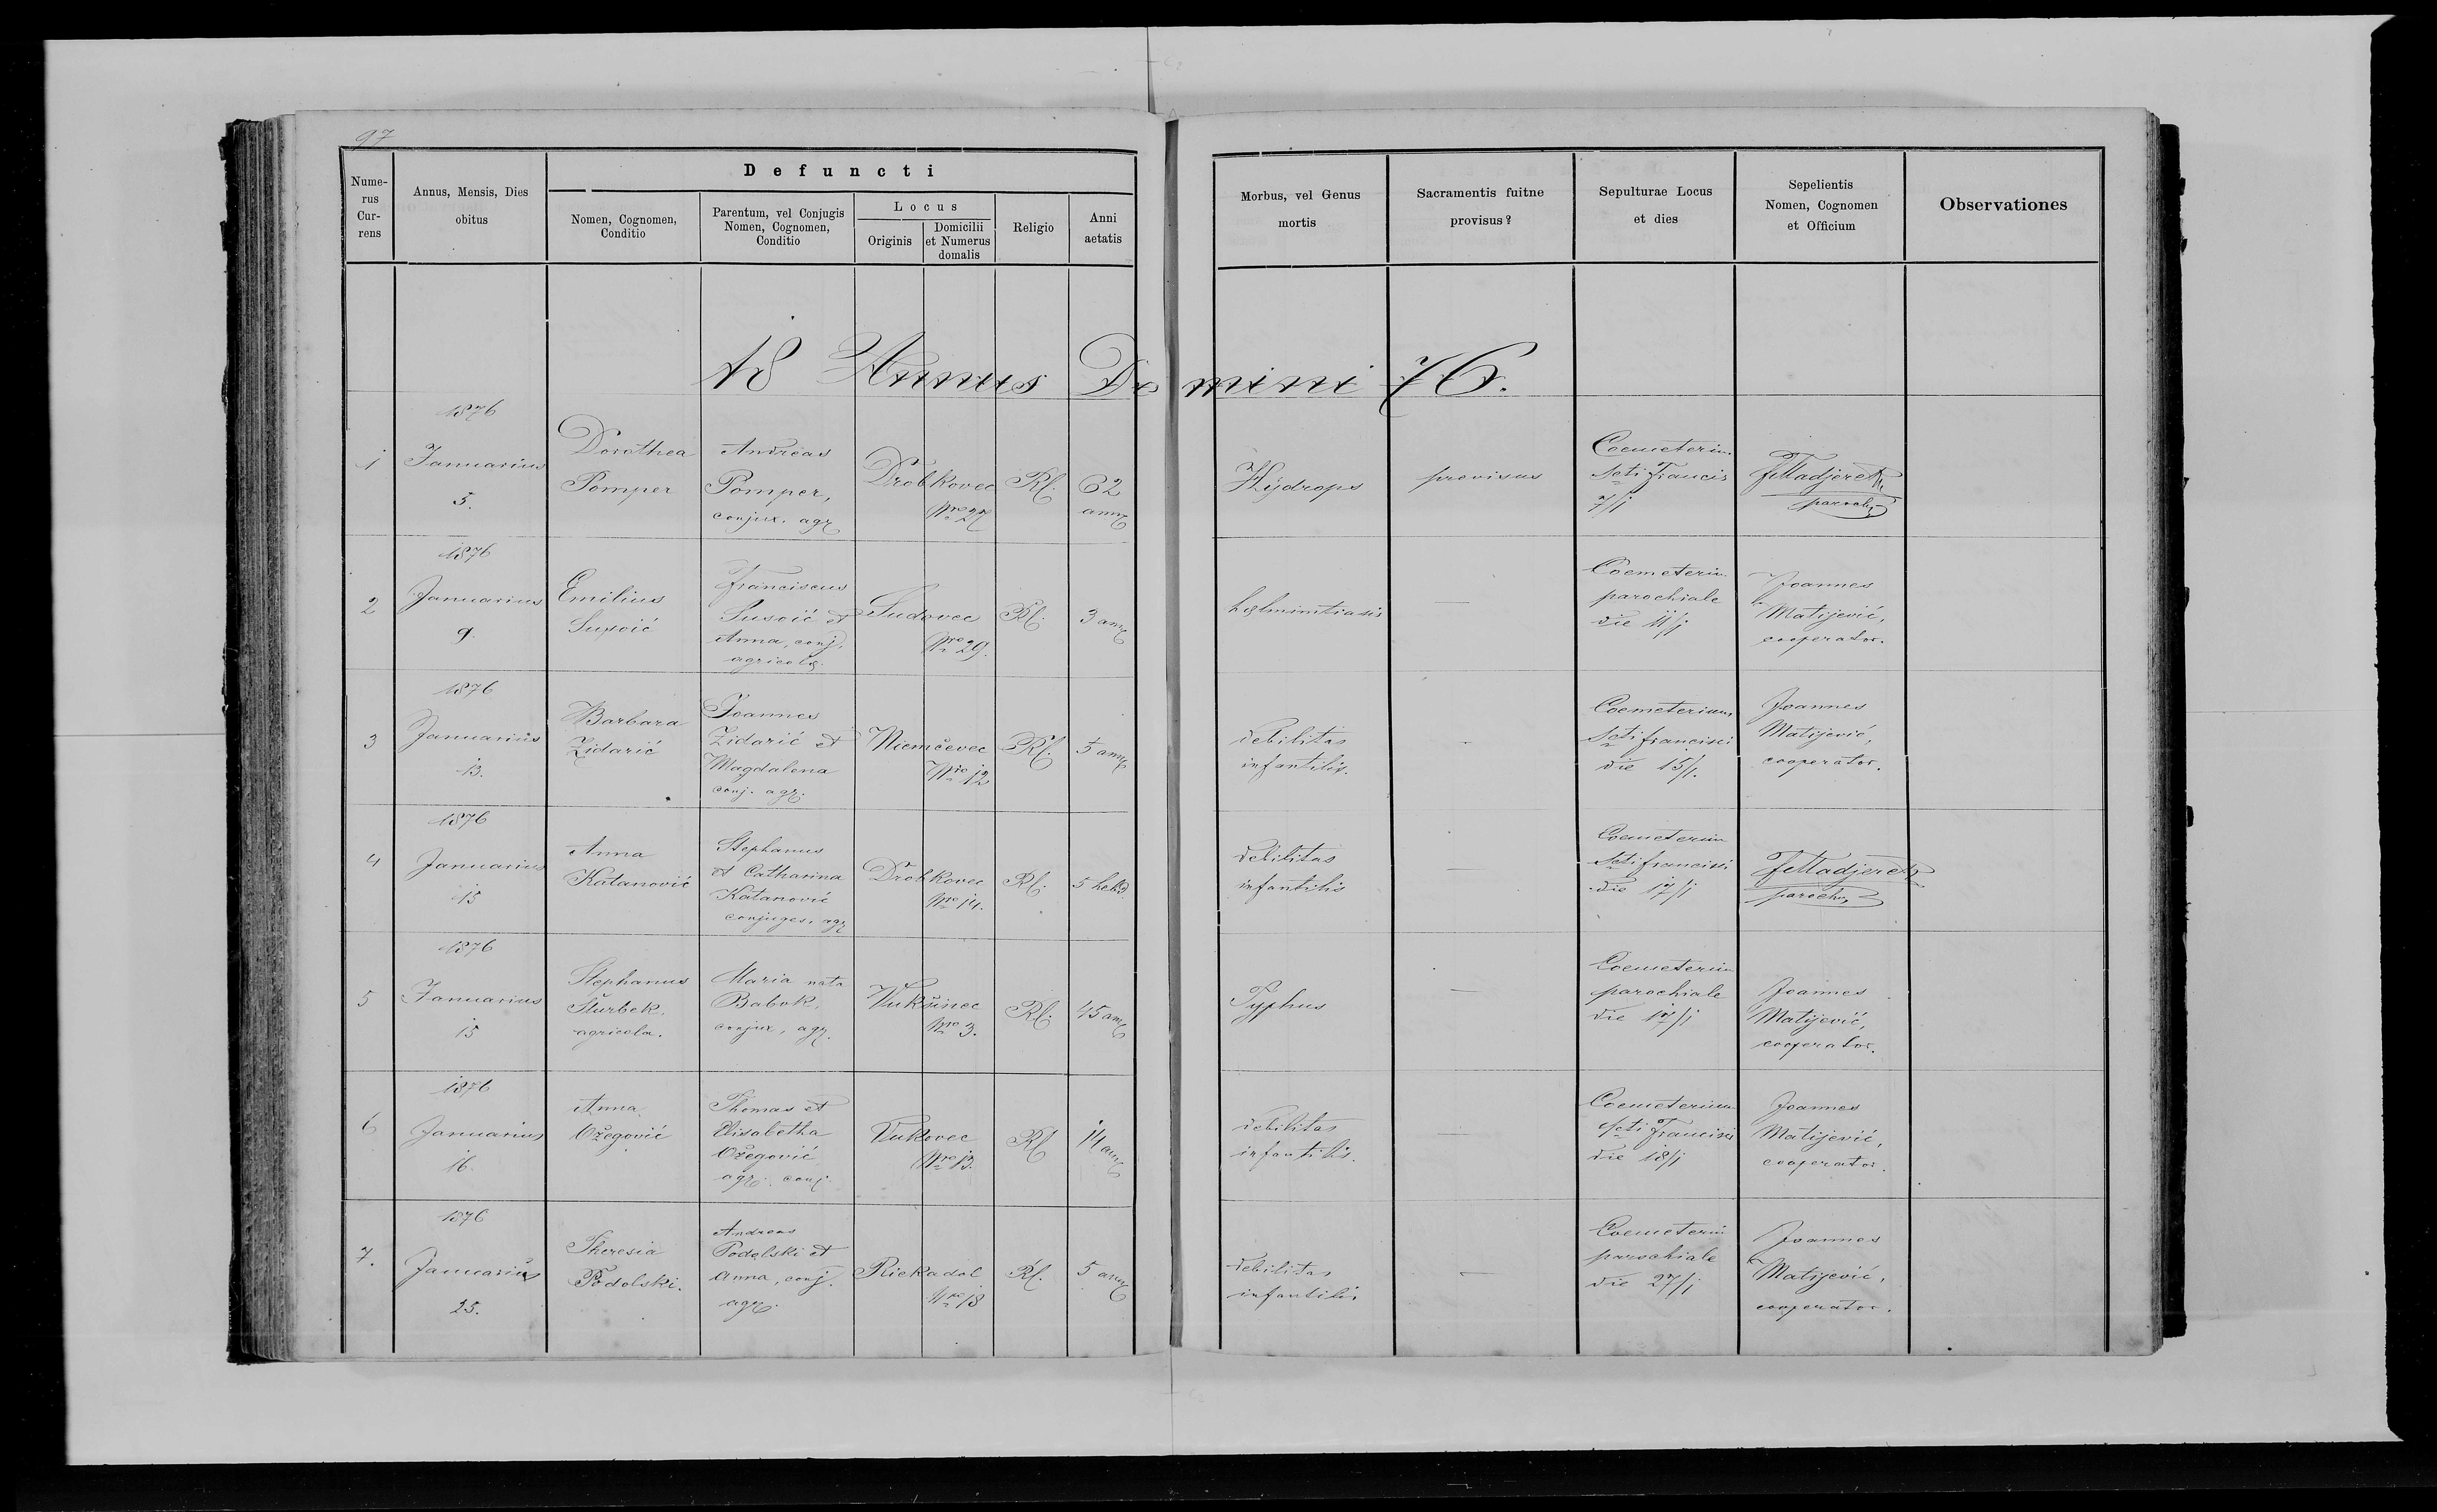 97
Defuncti
Nume-
rus
Cur-
rens
Annus, Mensis, Dies
obitus
Nomen, Cognomen,
Conditio
Parentum, vel Conjugis
Nomen, Cognomen,
Conditio
Locus
Originis
Domicilii
et Numerus
domalis
Religio
Anni
aetatis
Morbus, vel Genus
mortis
Sacramentis fuitne
provisus?
Sepulturae Locus
et dies
Sepelientis
Nomen, Cognomen
et Officium
Observationes
18 Annus Domini 76.
1
1876
Januarius
5.
Dorothea
Pomper
Andreas
Pomper,
conjux. agr
Drobkovec
Nro 27
Rf.
62
ann
Hydrops
provisus
Coemeterium
Scti Francis
7/1
parochus
2
1876
Januarius
9.
Emilius
Susoić
Franciscus
Susoić et
Anna, conj.
agricolæ
Sudovec
Nro 29.
Rf.
3 ann
helminitiasis
—
Coemeterium
parochiale
die 11/1
Joannes
Matijević,
cooperator.
3
1876
Januarius
13.
Barbara
Zidarić
Joannes
Zidarić et
Magdalena
conj. agr.
Niemčevec
Nro 12
Rf.
5 ann
debilitas
infantilis.
—
Coemeterium
Scti Francisci
die 15/1.
Joannes
Matijević,
cooperator.
4
1876
Januarius
15
Anna
Katanović
Stephanus
et Catharina
Katanović
conjuges. agr
Drobkovec
Nro 14.
Rf.
5 hebd.
debilitas
infantilis
—
Coemeterium
Scti Francisci
die 17/1
parochus
5
1876
Januarius
15
Stephanus
Šturbek,
agricola.
Maria nata
Babok,
conjux, agr.
Vukšinec
Nro 3.
Rf.
45 ann
Typhus
—
Coemeterium
parochiale
die 17/1
Joannes
Matijević,
cooperator.
6
1876
Januarius
16.
Anna
Ožegović
Thomas et
Elisabetha
Ožegović
agr. conj.
Vukovec
Nro 13.
Rf
14 ann
debilitas
infantilis.
—
Coemeterium
Scti Francisci
die 18/1
Joannes
Matijević,
cooperator.
7.
1876
Januarius
25.
Theresia
Podolski.
Andreas
Podolski et
Anna, conj.
agr.
Riekadol
Nro 18
Rf.
5 ann
debilitas
infantilis
—
Coemeterium
parochiale
die 27/1
Joannes
Matijević,
cooperator.